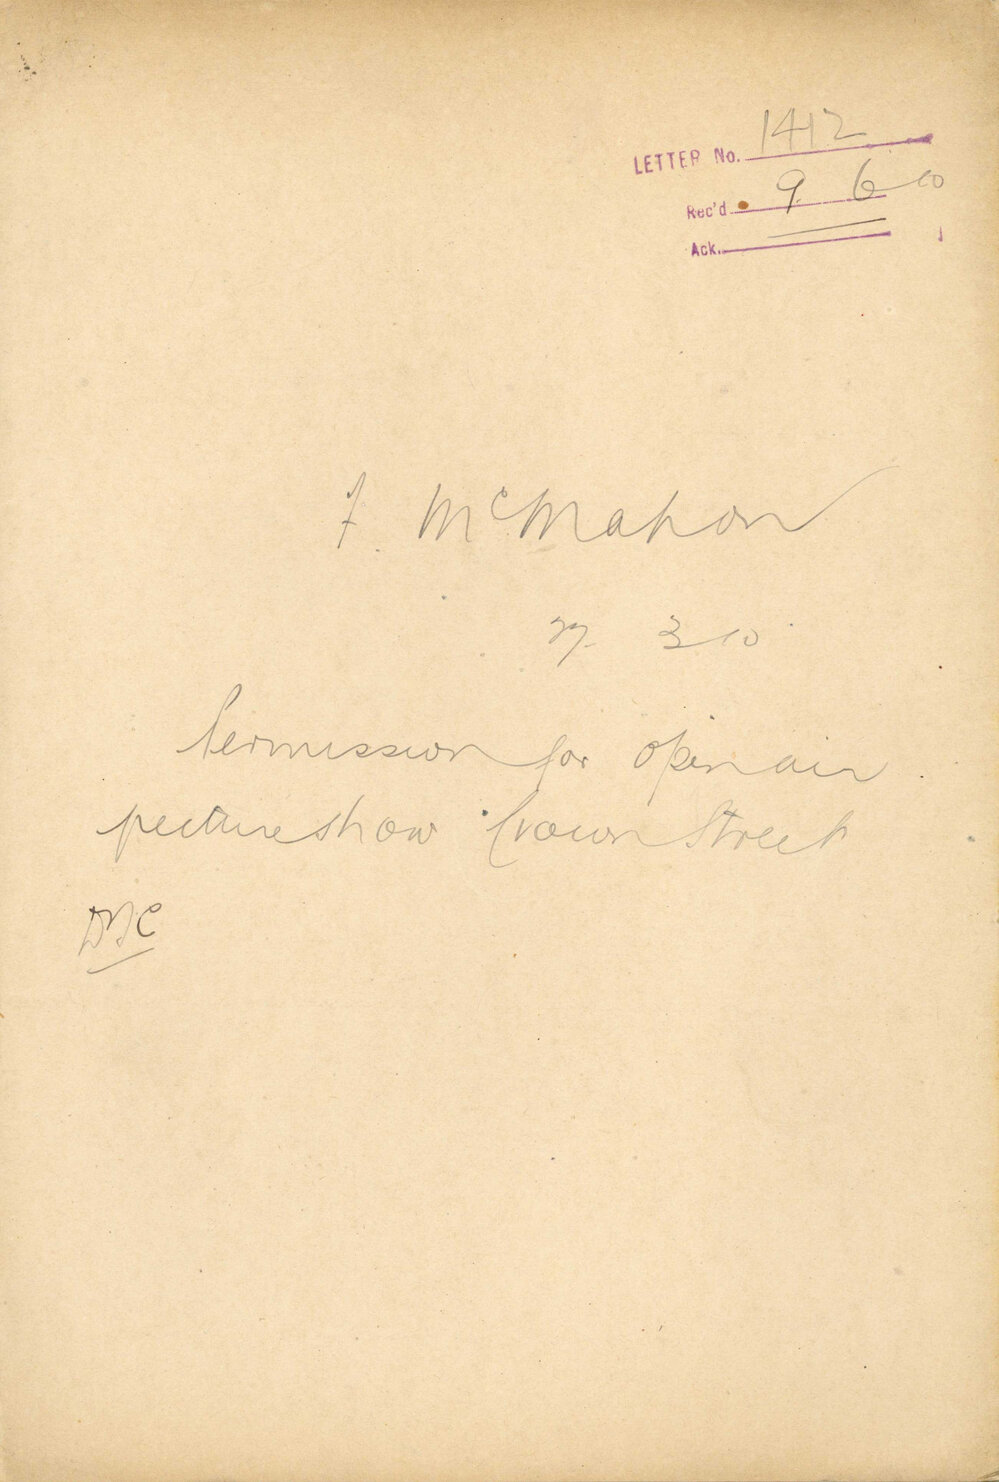 LETTER No. 1412
Rec'd. 9 6 10
Ack.
F. McMahon
27. 3 10
Permission for open air
picture show Crown Street